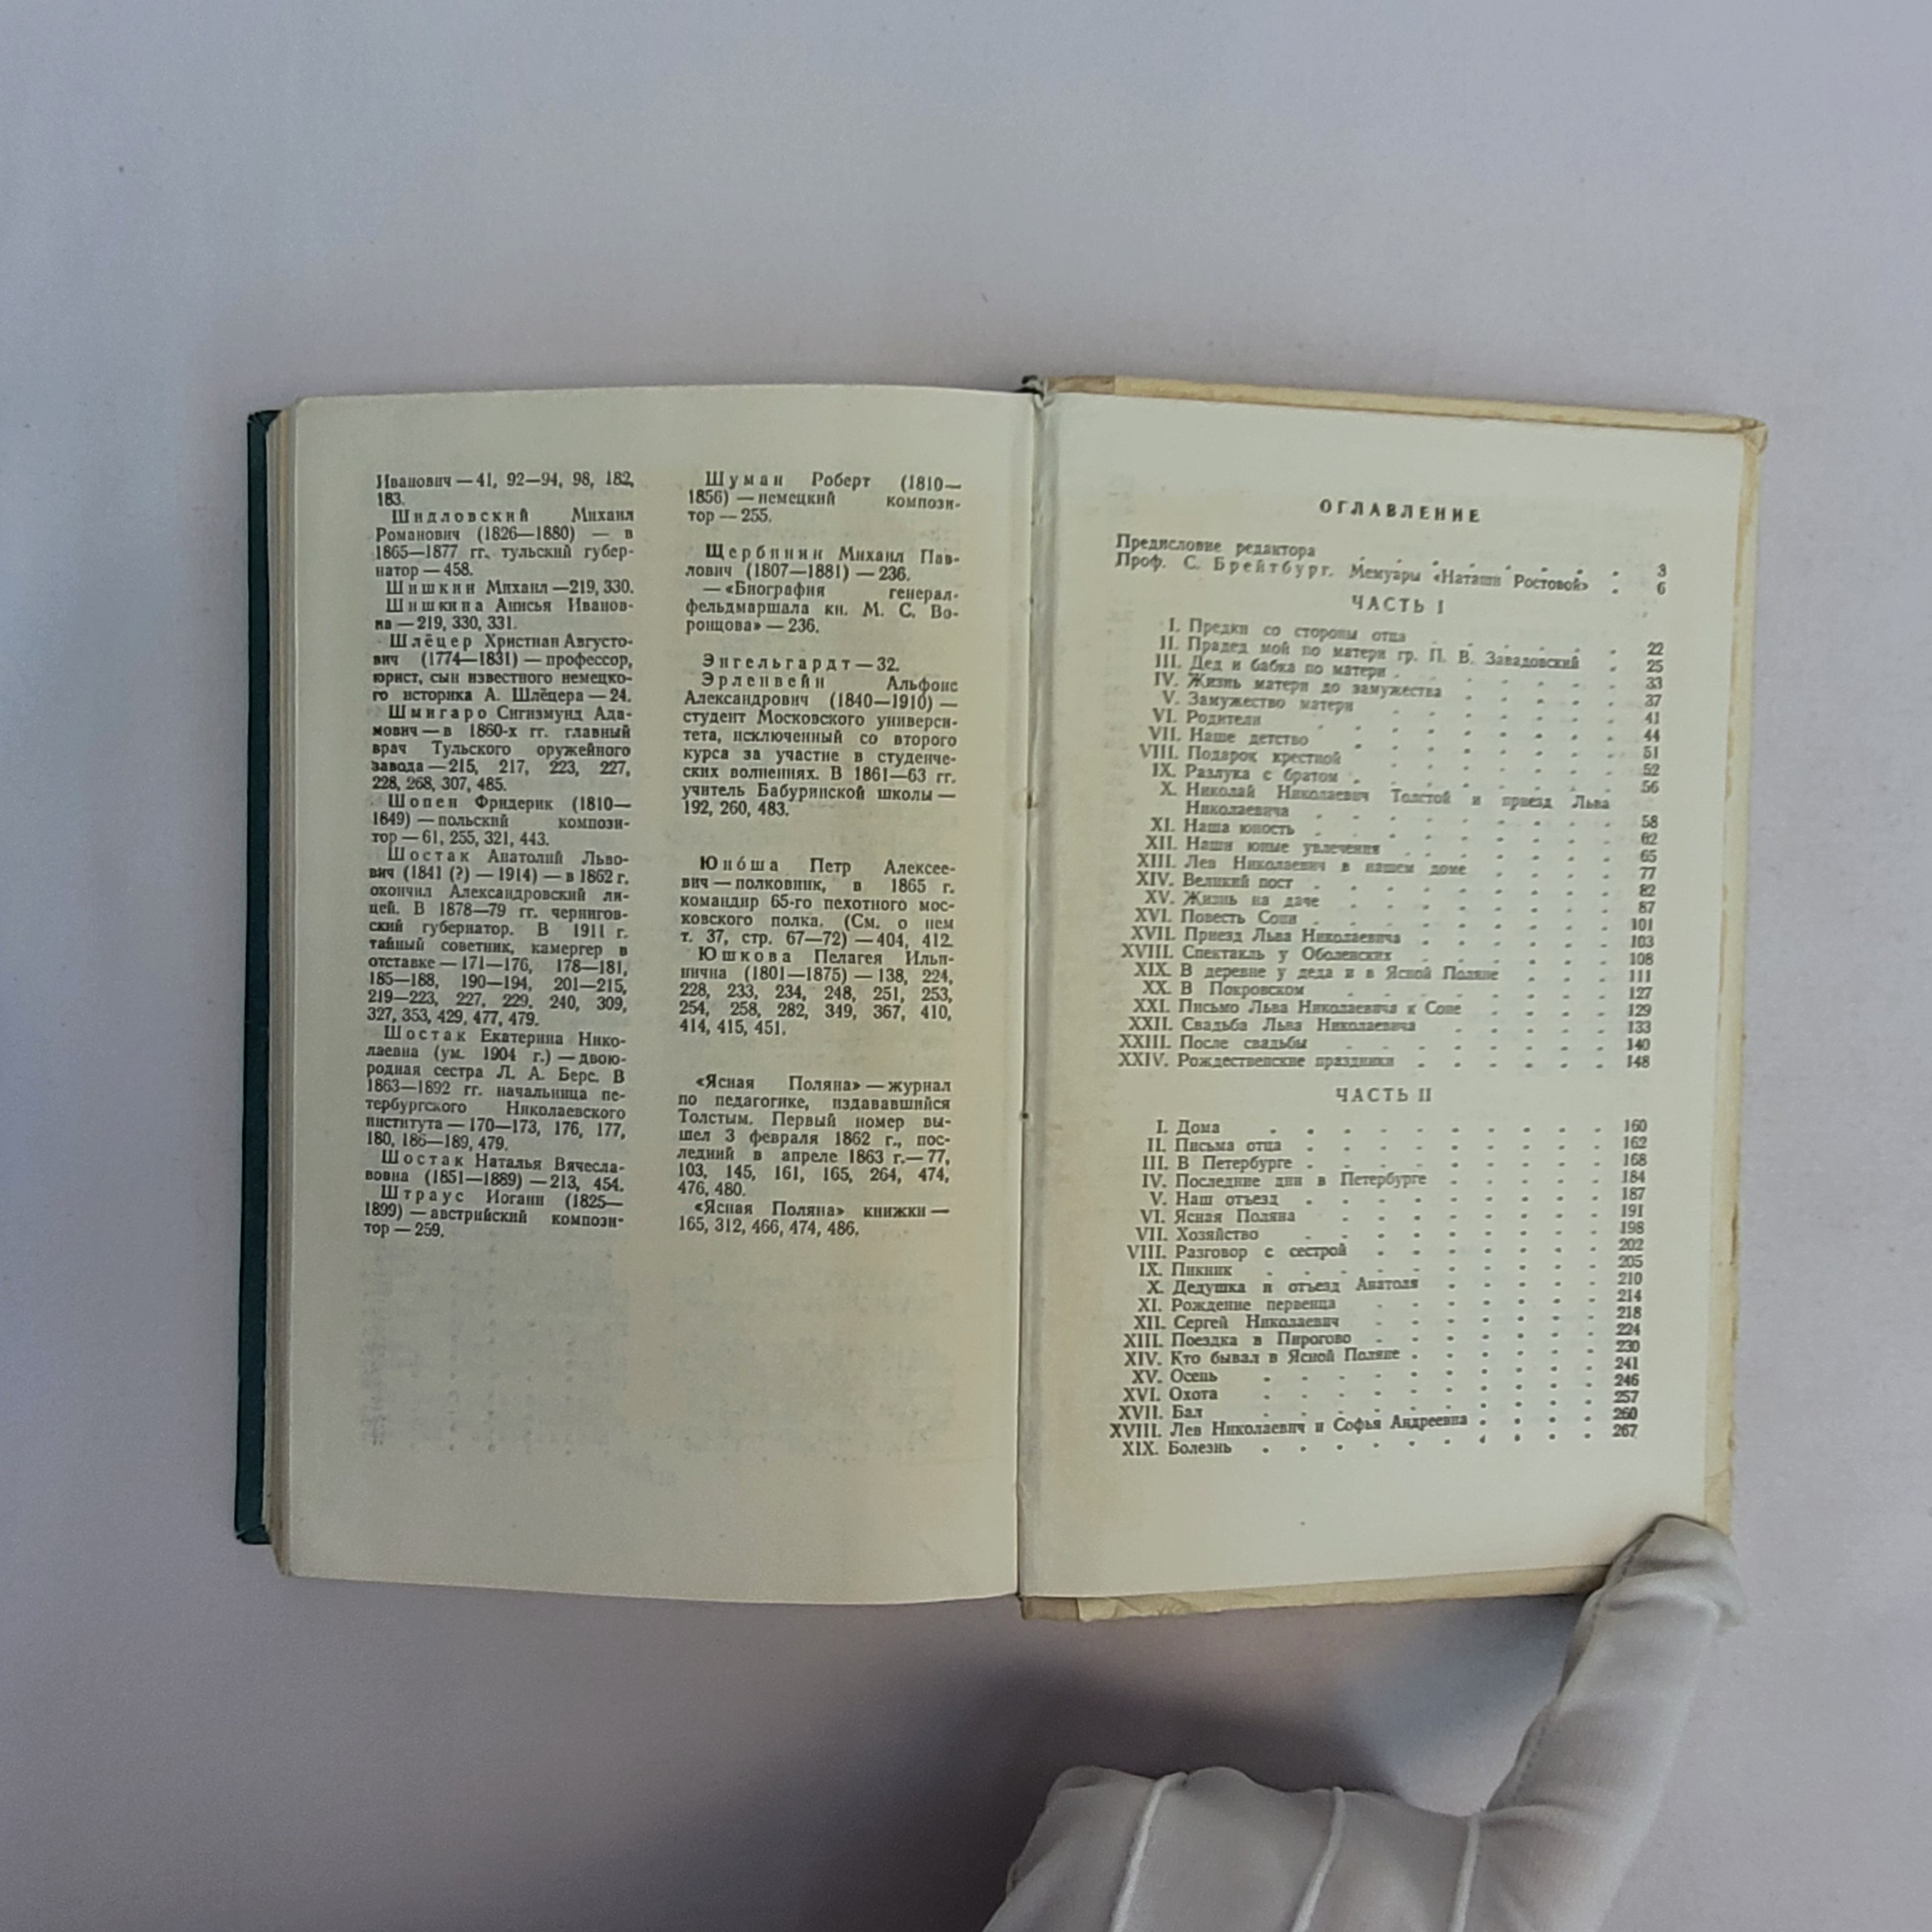 Иванович — 41, 92—94, 98, 182,
183.
Шидловский Михаил
Романович (1826—1880) — в
1865—1877 гг. тульский губер-
натор — 458.
Шишкин Михаил —219, 330.
Шишкина Анисья Иванов-
на — 219, 330, 331.
Шлёцер Христиан Августо-
вич (1774—1831) — профессор,
юрист, сын известного немецко-
го историка А. Шлёцера — 24.
Шмигаро Сигизмунд Ада-
мович — в 1860-х гг. главный
врач Тульского оружейного
завода — 215, 217, 223, 227,
228, 268, 307, 485.
Шопен Фридерик (1810—
1849) — польский компози-
тор — 61, 255, 321, 443.
Шостак Анатолий Льво-
вич (1841 (?) — 1914) — в 1862 г.
окончил Александровский ли-
цей. В 1878—79 гг. чернигов-
ский губернатор. В 1911 г.
тайный советник, камергер в
отставке — 171—176, 178—181,
185—188, 190—194, 201—215,
219—223, 227, 229, 240, 309,
327, 353, 429, 477, 479.
Шостак Екатерина Нико-
лаевна (ум. 1904 г.) — двою-
родная сестра Л. А. Берс. В
1863—1892 гг. начальница пе-
тербургского Николаевского
института — 170—173, 176, 177,
180, 186—189, 479.
Шостак Наталья Вячесла-
вовна (1851—1889) — 213, 454.
Штраус Иоганн (1825—
1899) — австрийский компози-
тор — 259.
Шуман Роберт (1810—
1856) — немецкий компози-
тор — 255.
Щербинин Михаил Пав-
лович (1807—1881) — 236.
— «Биография генерал-
фельдмаршала кн. М. С. Во-
ронцова» — 236.
Энгельгардт — 32.
Эрленвейн Альфонс
Александрович (1840—1910) —
студент Московского универси-
тета, исключенный со второго
курса за участие в студенче-
ских волнениях. В 1861—63 гг.
учитель Бабуринской школы —
192, 260, 483.
Юноша Петр Алексее-
вич — полковник, в 1865 г.
командир 65-го пехотного мос-
ковского полка. (См. о нем
т. 37, стр. 67—72) — 404, 412.
Юшкова Пелагея Ильи-
нична (1801—1875) — 138, 224,
228, 233, 234, 248, 251, 253,
254, 258, 282, 349, 367, 410,
414, 415, 451.
«Ясная Поляна» — журнал
по педагогике, издававшийся
Толстым. Первый номер вы-
шел 3 февраля 1862 г., пос-
ледний в апреле 1863 г.— 77,
103, 145, 161, 165, 264, 474,
476, 480.
«Ясная Поляна» книжки —
165, 312, 466, 474, 486.
ОГЛАВЛЕНИЕ
Предисловие редактора . . . . . . . . 3
Проф. С. Брейтбург. Мемуары «Наташи Ростовой» . 6
ЧАСТЬ I
I. Предки со стороны отца . . . . . . 22
II. Прадед мой по матери гр. П. В. Завадовский . 25
III. Дед и бабка по матери . . . . . . . 33
IV. Жизнь матери до замужества . . . . . 37
V. Замужество матери . . . . . . . . 41
VI. Родители . . . . . . . . 44
VII. Наше детство . . . . . . . . 51
VIII. Подарок крестной . . . . . . . 52
IX. Разлука с братом . . . . . . . . 56
X. Николай Николаевич Толстой и приезд Льва
Николаевича . . . . . . . . 58
XI. Наша юность . . . . . . . . . 62
XII. Наши юные увлечения . . . . . . . 65
XIII. Лев Николаевич в нашем доме . . . . 77
XIV. Великий пост . . . . . . . . . 82
XV. Жизнь на даче . . . . . . . . 87
XVI. Повесть Сони . . . . . . . . . 101
XVII. Приезд Льва Николаевича . . . . . . 103
XVIII. Спектакль у Оболенских . . . . . . 108
XIX. В деревне у деда и в Ясной Поляне . . . 111
XX. В Покровском . . . . . . . . 127
XXI. Письмо Льва Николаевича к Соне . . . . 129
XXII. Свадьба Льва Николаевича . . . . . 133
XXIII. После свадьбы . . . . . . . . 140
XXIV. Рождественские праздники . . . . . . 148
ЧАСТЬ II
I. Дома . . . . . . . . . . 160
II. Письма отца . . . . . . . . . 162
III. В Петербурге . . . . . . . . . 168
IV. Последние дни в Петербурге . . . . . 184
V. Наш отъезд . . . . . . . . . 187
VI. Ясная Поляна . . . . . . . . 191
VII. Хозяйство . . . . . . . . . 198
VIII. Разговор с сестрой . . . . . . . 202
IX. Пикник . . . . . . . . . . 205
X. Дедушка и отъезд Анатоля . . . . . 210
XI. Рождение первенца . . . . . . . 214
XII. Сергей Николаевич . . . . . . . 218
XIII. Поездка в Пирогово . . . . . . . 224
XIV. Кто бывал в Ясной Поляне . . . . . . 230
XV. Осень . . . . . . . . . . 241
XVI. Охота . . . . . . . . . . 246
XVII. Бал . . . . . . . . . . 257
XVIII. Лев Николаевич и Софья Андреевна . . . . 260
XIX. Болезнь . . . . . . . . . . 267